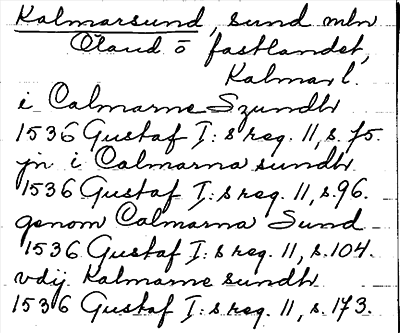 Kalmarsund, sund mln
Öland o fastlandet,
Kalmar l.
i Calmarne Szundh
1536 Gustaf I:s reg. 11, s. 75.
jn i Calmarna sundh
1536 Gustaf I:s reg. 11, s. 96.
genom Calmarna Sund
1536 Gustaf I:s reg. 11, s. 104.
vdij Kalmarne sundh
1536 Gustaf I:s reg. 11, s. 173.